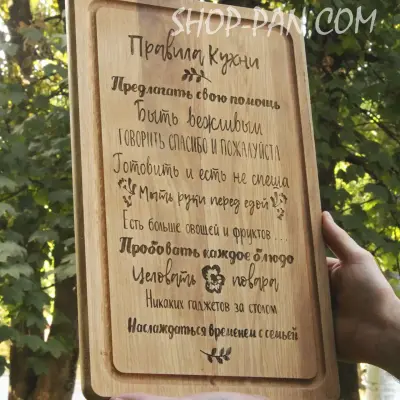 SHOP-PAN.COM
Правила Кухни
Предлагать свою помощь
Быть вежливым
ГОВОРИТЬ СПАСИБО И ПОЖАЛУЙСТА
Готовить и есть не спеша
Мыть руки перед едой
Есть больше овощей и фруктов ...
Пробовать каждое блюдо
Целовать повара
Никаких гаджетов за столом
Наслаждаться временем с семьей